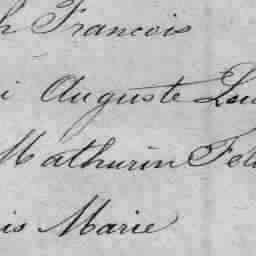 h Francois
i Auguste Lou
Mathurin Feli
is Marie